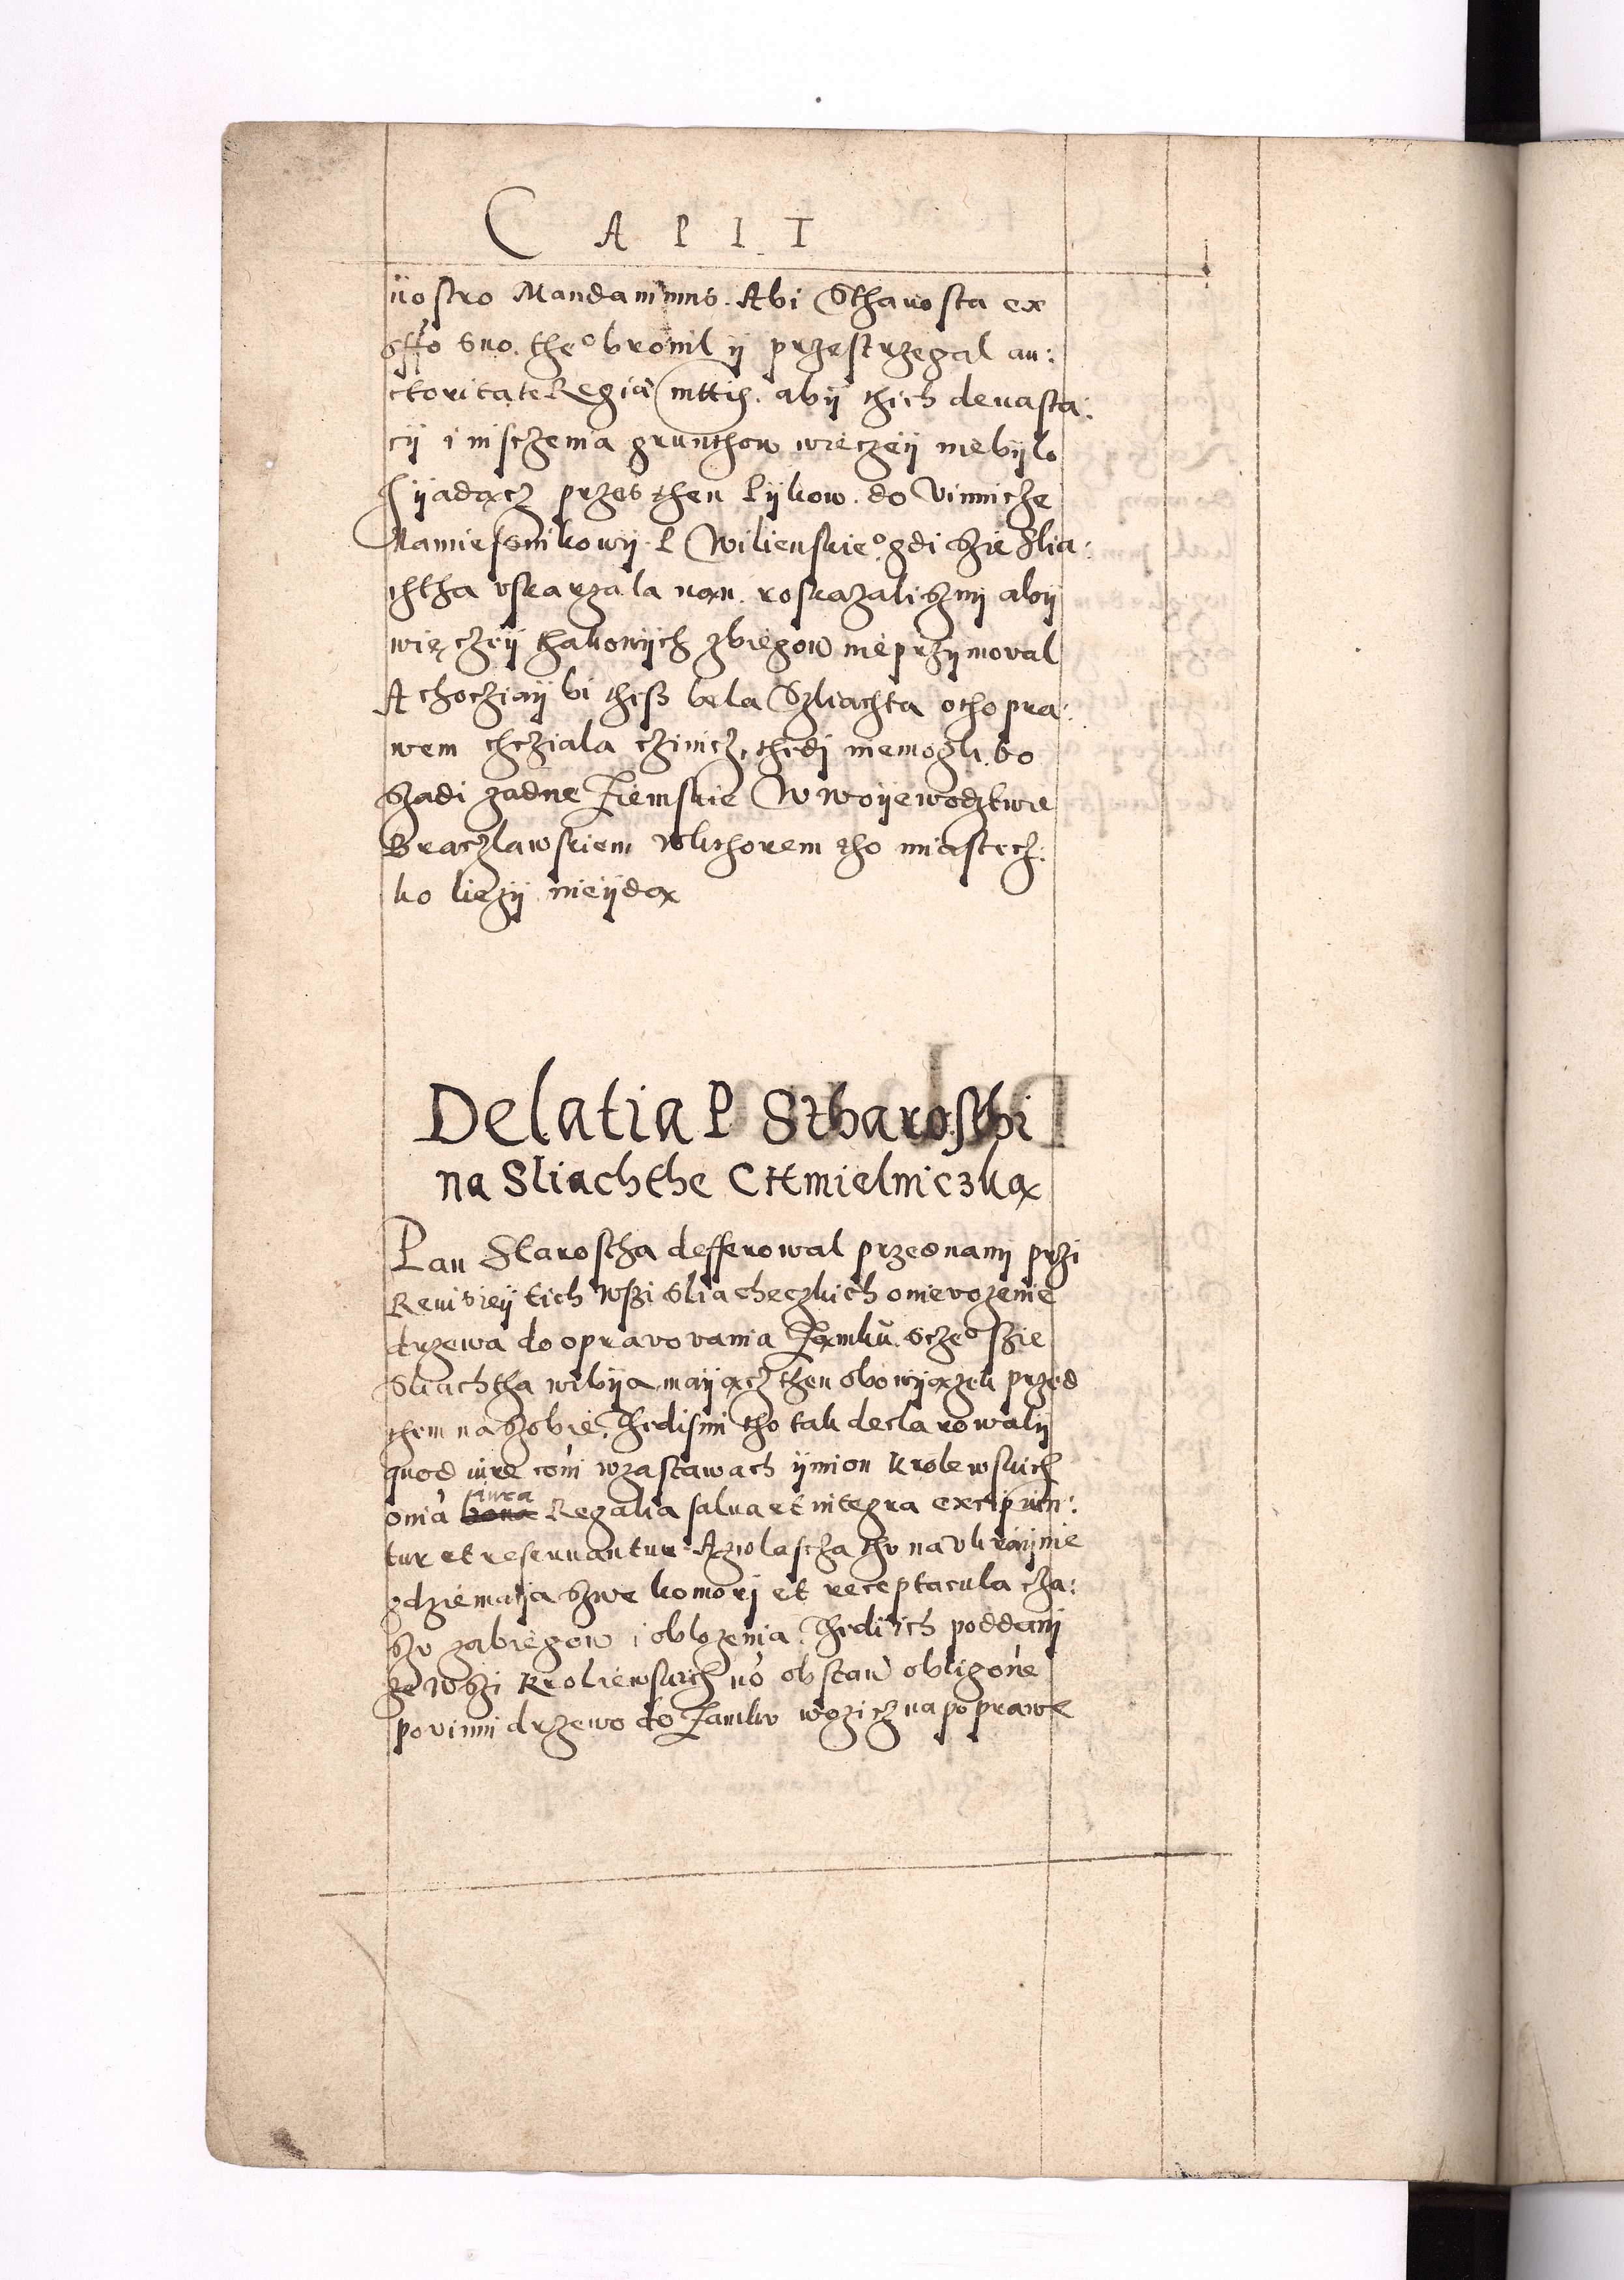 CAPIT
nostro Mandamus. Abi Stharosta ex
offo suo. the° bronil ij przestrzegal au:
ctoritate Regia mttis. abij thich deuasta:
cij i nisczenia grunthow wieczeij niebijlo
Jijadącz przes then Lijkow. do Vinnicze
Namiesnikowij P Wilienskie° gdi szie Slia:
chtha vskarzala nan. roskazalismij abij
więczeij thakowijch zbiegow nieprzijmoval
A chocziaij bi thesz bela Szliachta otho pra:
wem chcziala czinicz, thedj niemogli. bo
szadi zadne Ziemskie W Woijewodztwie
Braczlawskiem Wkthorem tho miastecz:
ko liezij nieijdą
Delatia P Stharosthi
na Sliachthe CHmielniczką
Pan Starostha defferowal przednamj przi
Reuisieij tich Wszi Sliacheczkich oniewozenie
drzewa do opravovania Zamku. Scze° szie
Sliachtha wibija, maijącz then obowijązek przed
them na szobie. Thedismi tho tak declarowalij
quod iure coni wzastawach ijmion Krolewskich
omia iura Regalia salua et integra excipiun:
tur et reseruantur. Azwlascha thu na Vkrainie
gdzie maija szwe komorj et receptacula cza:
szu zabiegow i oblozenia. Thedi ich poddani
ze Wszi Kroliewskich no obstan obligone
povinni drzewo do Zamku wozicz na poprawe